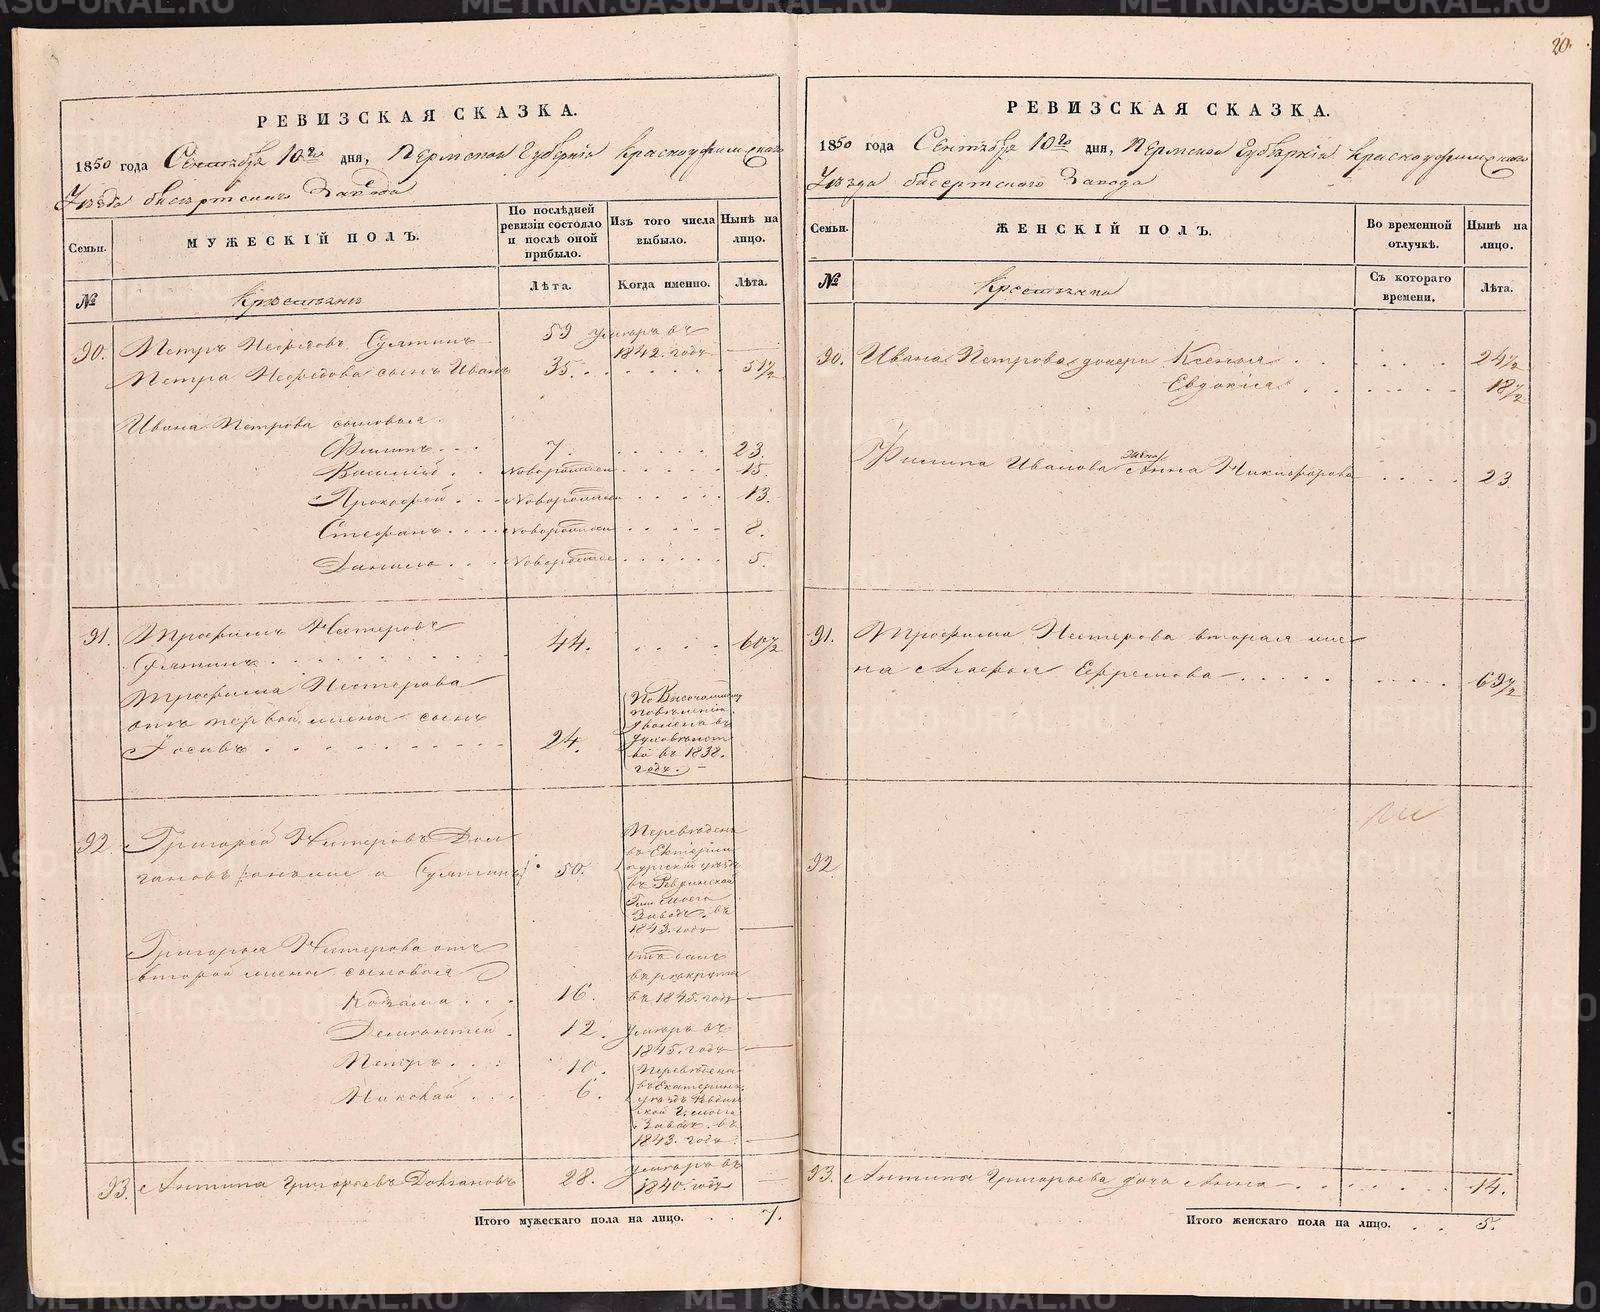 20.
РЕВИЗСКАЯ СКАЗКА.
1850 года Сентября 10го дня, Пермской Губернiи Красноуфимскаго
Уѣзда Бисертскаго Завода
Семьи.
МУЖЕСКIЙ ПОЛЪ.
По послѣдней ревизiи состояло и послѣ оной прибыло.
Изъ того числа выбыло.
Нынѣ на лицо.
№
Крестьяне
Лѣта.
Когда именно.
Лѣта.
90. Петръ Нефедовъ Сулятинъ 59 умеръ въ 1842. годѣ —
Петра Нефедова сынъ Иванъ 35. . . . . . . . 51 1/2
Ивана Петрова сыновья
Филипъ . . . 7. . . . . . 23.
Василiй . . Новорожден . . . . . 15
Прокофей . . . Новорожден . . . . . 13.
Стефанъ . . . . Новорожден . . . . . 8.
Данило . . . Новорожден . . . . . 5.
91. Трофимъ Нестеровъ
Сулятинъ . . . . . . . . . 44. . . . . 60 1/2
Трофима Нестерова
отъ первой жены сынъ
Iосивъ . . . . . . . . . . 24.
По Высочайшему
повѣленiю
уволенъ въ
въ 1838.
годѣ. —
92. Григорей Нестеровъ Дол
гановъ /:онъ же и Сулятинъ:/ 50.
Переведенъ
въ Екатерин
бургскiй уѣздъ
въ Ревдинской
Заводъ. въ
1843. годѣ —
Григорья Нестерова отъ
второй жены сыновья
Козьма . . . 16.
отданъ
въ рекруты
въ 1845. годѣ —
Дементей . 12. умеръ въ
1845. годѣ —
Петръ . . . 10.
Николай . . . 6.
Переведены
въ Екатерин.
уѣздъ Ревдин
ской
Заводъ. въ
1843. годѣ. —
93. Антипа Григорьевъ Долгановъ 28. умеръ въ
1840. годѣ —
Итого мужескаго пола на лицо. . . 7.
РЕВИЗСКАЯ СКАЗКА.
1850 года Сентября 10го дня, Пермской Губернiи Красноуфимскаго
Уѣзда Бисертскаго Завода
Семьи.
ЖЕНСКIЙ ПОЛЪ.
Во временной отлучкѣ.
Нынѣ на лицо.
№
Крестьяне
Съ котораго времени.
Лѣта.
90. Ивана Петрова дочери Ксенья . . . . . . 24 1/2
Евдокiя . . . . . . 18 1/2
Филипа Иванова жена Анна Никифорова . . . . 23.
91. Трофима Нестерова вторая же
на Агафья Ефремова . . . . . . . . . 69 1/2
92.
93. Антипа Григорьева дочь Анна . . . . . . . 14.
Итого женскаго пола на лицо. . . 5.
METRIKI.GASO-URAL.RU